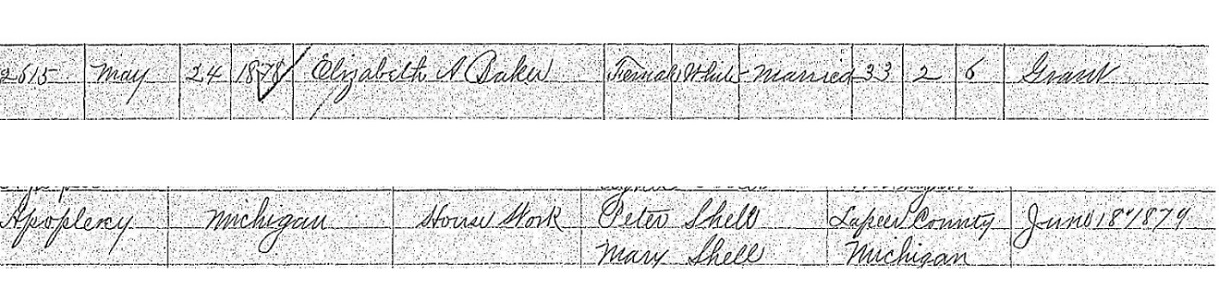 2615 May 24 1878 Elizabeth A Baker Female White Married 33 2 6 Grant
Apoplexy Michigan House Work Peter Shell Lapeer County June 18 1879
Mary Shell Michigan